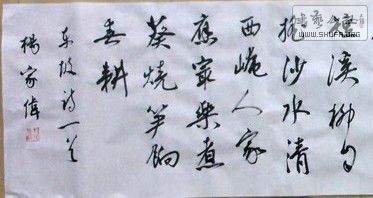 溪柳自
摇沙水清
西崦人家
應最樂煮
葵燒笋餉
春耕
东坡诗一首
楊家偉
WWW.SHUFA.ORG